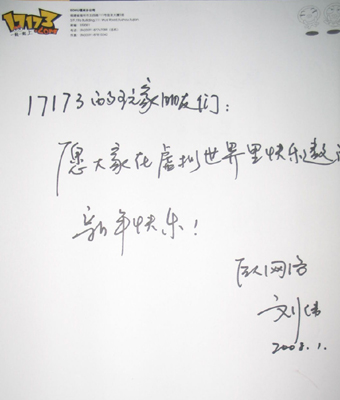 17173
.com
17173的玩家朋友们：
愿大家在虚拟世界里快乐遨
新年快乐！
巨人网络
刘伟
2008.1.